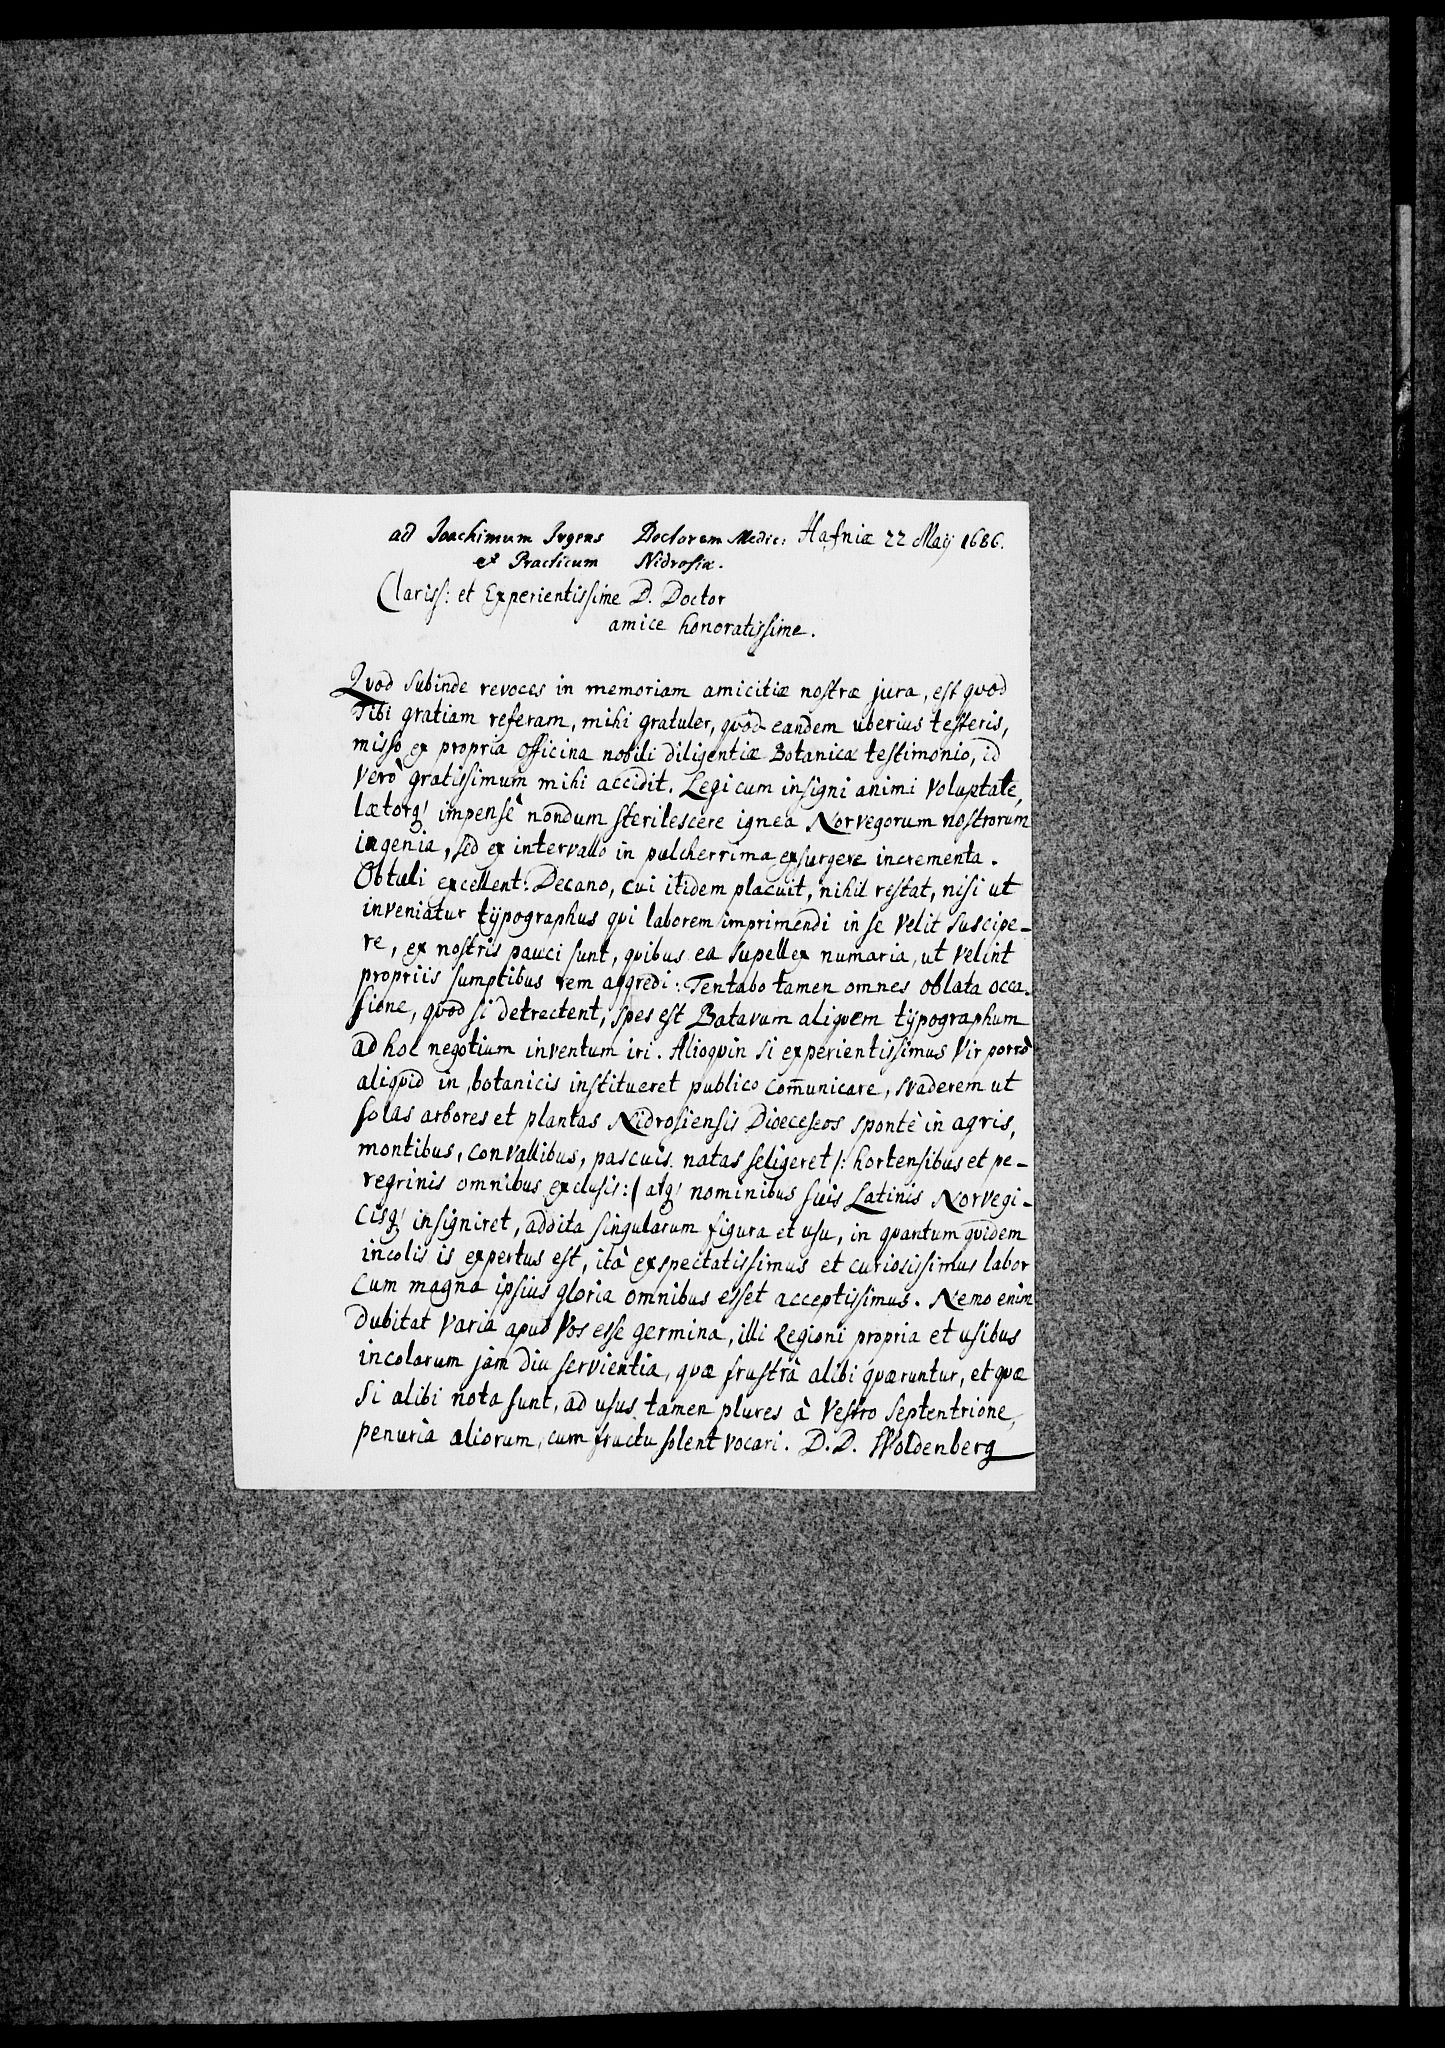 ad Joachimum Irgens Doctorem Medic: Hafniæ 22 Maÿ 1686.
et Practicum Nidrosiæ.
Clariss: et Experientissime D. Doctor
amice honoratissime.
Qvod subinde revoces in memoriam amicitiæ nostræ jura, est qvod
Tibi gratiam referam, mihi gratuler, qvòd eandem uberius testeris,
misso ex propria officina nobili diligentiæ Botanicæ testimonio, id
verò gratissimum mihi accidit. Legi cum insigni animi voluptate,
lætorq' impensè nondum sterilescere ignea Norvegorum nostrorum
ingenia, sed ex intervallo in pulcherrima exsurgere incrementa.
Obtuli excellent: Decano, cui itidem placuit, nihil restat, nisi ut
inveniatur tÿpographus qvi laborem imprimendi in se velit suscipe-
re, ex nostris pauci sunt, qvibus ea supellex numaria, ut velint
propriis sumptibus rem aggredi: Tentabo tamen omnes oblata occa-
sione, qvod si detrectent, spes est Batavum aliqvem tÿpographum
ad hoc negotium inventum iri. Alioqvin si experientissimus Vir porrò
aliqvid in botanicis institueret publico com̄unicare, svaderem ut
solas arbores et plantas Nidrosiensis Dioeceseos spontè in agris,
montibus, convallibus, pascuis natas seligeret /: hortensibus et pe-
regrinis omnibus exclusis:/ atq' nominibus suis Latinis Norvegi-
cisq' insigniret, addita singularum figura et usu, in qvantum qvidem
incolis is expertus est, ità exspectatissimus et curiosissimus labor
cum magna ipsius gloria omnibus esset acceptissimus. Nemo enim
dubitat varia apud Vos esse germina, illi Regioni propria et usibus
incolarum jàm diu servientia, qvæ frustrà alibi qværuntur, et qvæ
si alibi nota sunt, ad usus tamen plures à Vestro Septentrione,
penurià aliorum, cum fructu solent vocari. D. D. Woldenberg